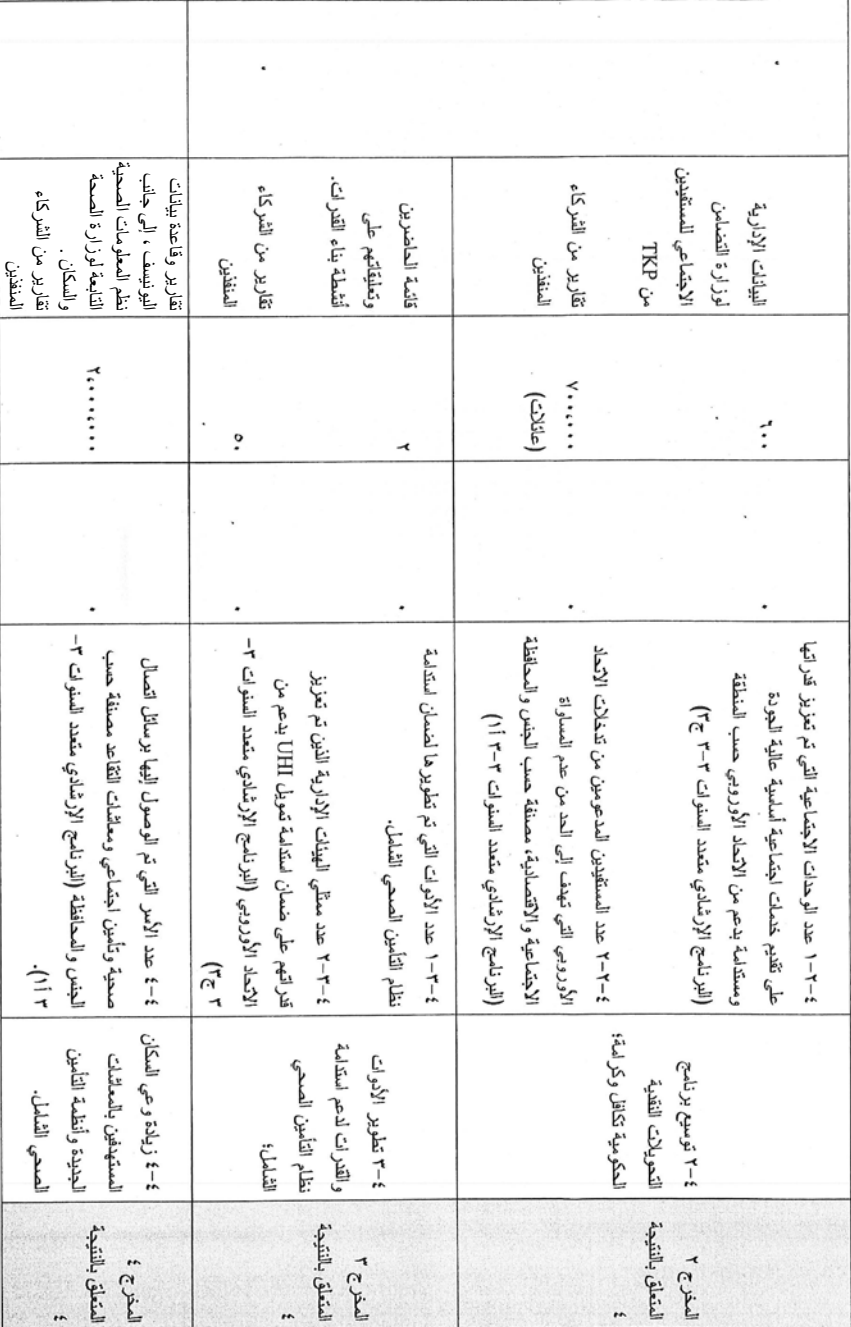 المخرج ٢
المتعلق بالنتيجة
٤
٤-٢ توسيع برنامج
التحويلات النقدية
الحكومية تكافل وكرامة؛
٤-٢-١ عدد الوحدات الاجتماعية التي تم تعزيز قدراتها
على تقديم خدمات اجتماعية أساسية عالية الجودة
ومستدامة بدعم من الاتحاد الأوروبي حسب المنطقة
(البرنامج الإرشادي متعدد السنوات ٣-٣ ج٣)
٠
٦٠٠
البيانات الإدارية
لوزارة التضامن
الاجتماعي للمستفيدين
من TKP
٠
٤-٢-٢ عدد المستفيدين المدعومين من تدخلات الاتحاد
الأوروبي التي تهدف إلى الحد من عدم المساواة
الاجتماعية والاقتصادية، مصنفة حسب الجنس والمحافظة
(البرنامج الإرشادي متعدد السنوات ٣-٣ أ١)
٠
٧٠٠,٠٠٠
(عائلات)
تقارير من الشركاء
المنفذين
المخرج ٣
المتعلق بالنتيجة
٤
٤-٣ تطوير الأدوات
والقدرات لدعم استدامة
نظام التأمين الصحي
الشامل؛
٤-٣-١ عدد الأدوات التي تم تطويرها لضمان استدامة
نظام التأمين الصحي الشامل.
٠
٢
قائمة الحاضرين
وتعليقاتهم على
أنشطة بناء القدرات.
٤-٣-٢ عدد ممثلي الهيئات الإدارية الذين تم تعزيز
قدراتهم على ضمان استدامة تمويل UHI بدعم من
الاتحاد الأوروبي (البرنامج الإرشادي متعدد السنوات ٣-
٣ ج٣)
٠
٥٠
تقارير من الشركاء
المنفذين
٠
المخرج ٤
المتعلق بالنتيجة
٤
٤-٤ زيادة وعي السكان
المستهدفين بالمعاشات
الجديدة وأنظمة التأمين
الصحي الشامل.
٤-٤ عدد الأسر التي تم الوصول إليها برسائل اتصال
صحية وتأمين اجتماعي ومعاشات التقاعد مصنفة حسب
الجنس والمحافظة (البرنامج الإرشادي متعدد السنوات ٣-
٣ أ١).
٠
٢,٠٠٠,٠٠٠
تقارير وقاعدة بيانات
اليونيسف ، إلى جانب
نظم المعلومات الصحية
التابعة لوزارة الصحة
والسكان .
تقارير من الشركاء
المنفذين